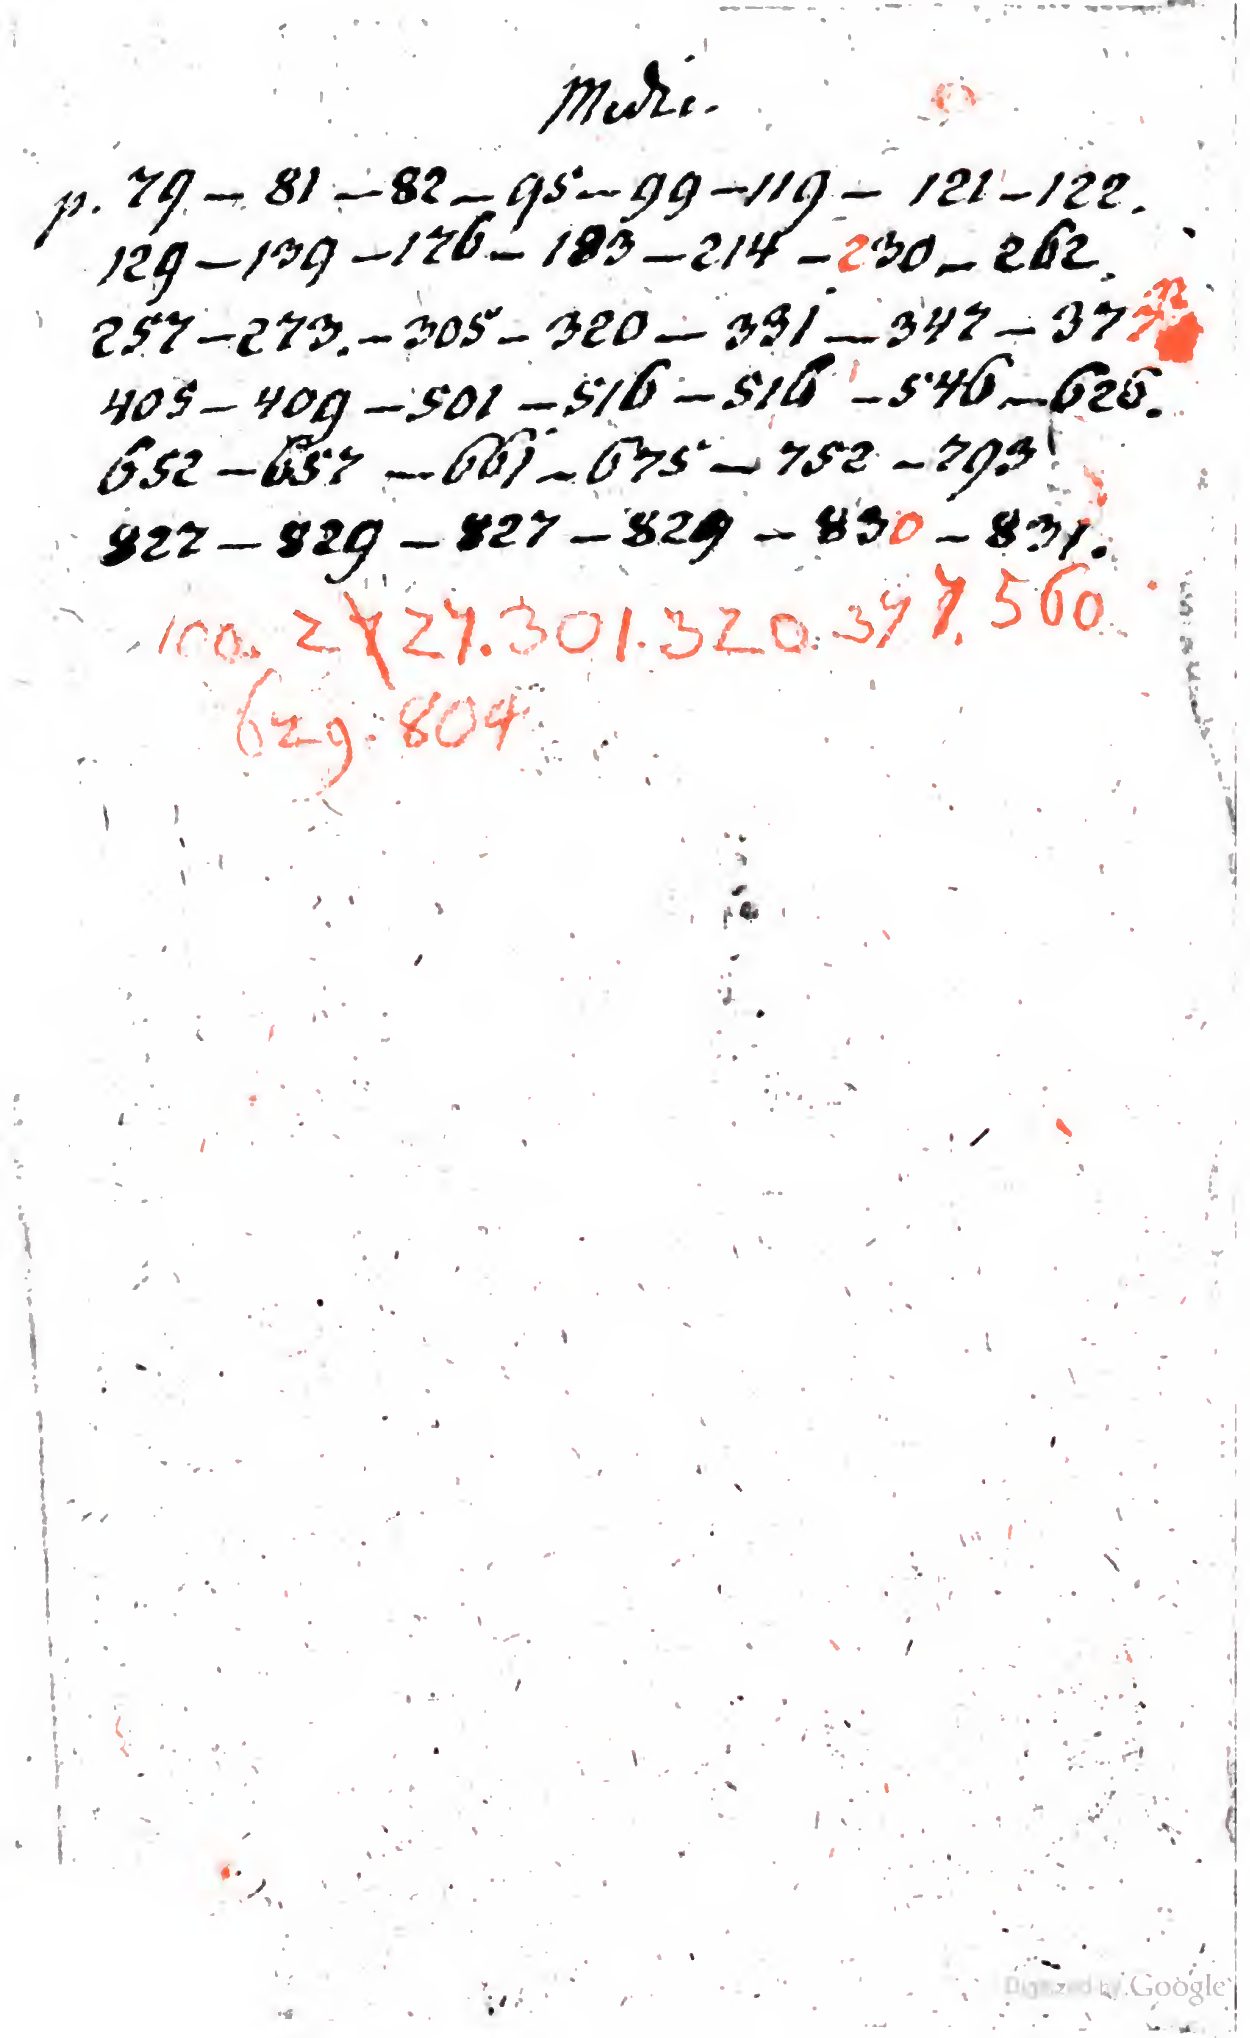 Medici.
p. 79 – 81 – 82 – 95 – 99 – 119 – 121 – 122.
129 – 139 – 176 – 183 – 214 – 230 – 262.
257 – 273. – 305 – 320 – 331 – 347 – 377
405 – 409 – 501 – 516 – 516 – 546 – 626.
652 – 657 – 661 – 675 – 752 – 793
827 – 829 – 827 – 829 – 830 – 831.
100. 227.301.320.377.560
629.804
Digitized by Google